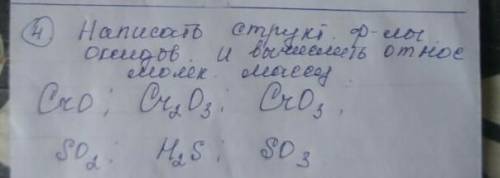 4 Написать структ. ф-лы
оксидов. и вычислить относ
молек. массу
CrO; Cr₂O₃; CrO₃,
SO₂; H₂S; SO₃